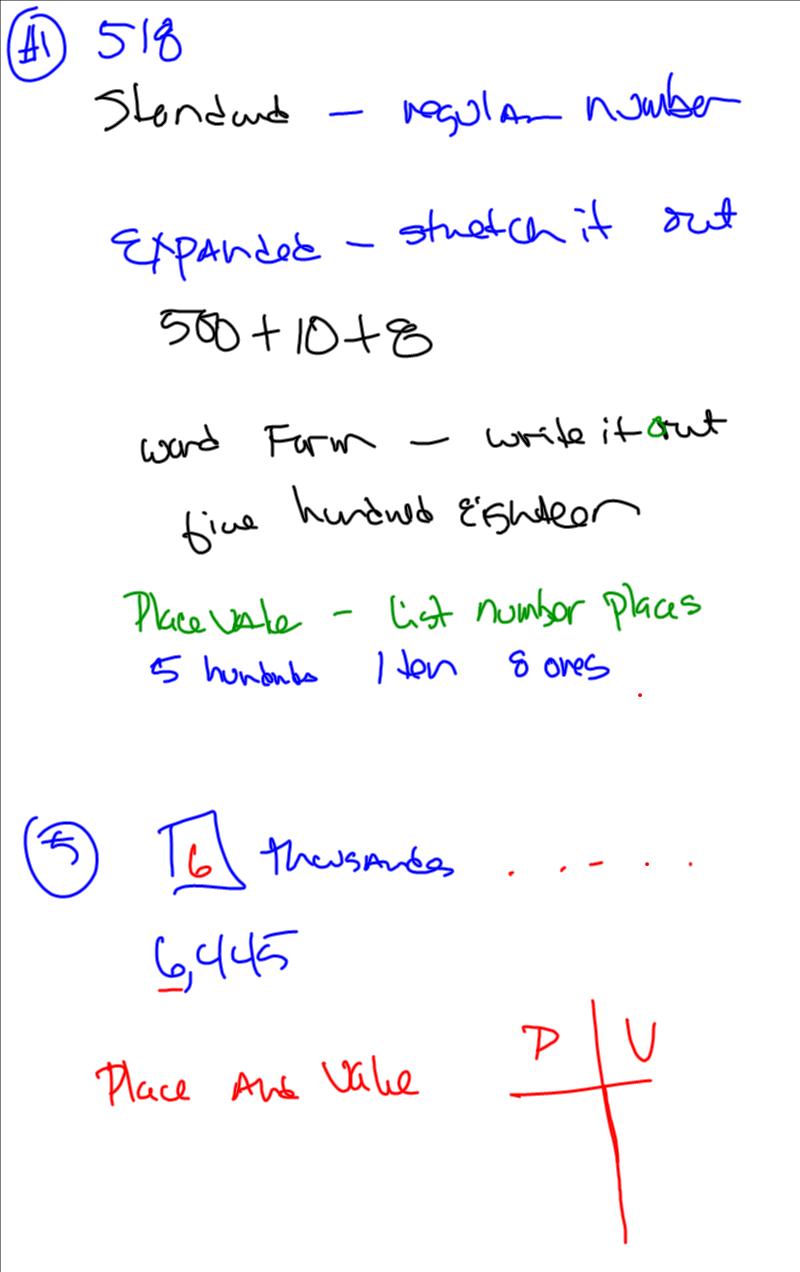 #1 518
Standard - regular number
Expanded - stretch it out
500 + 10 + 8
word Form - write it out
five hundred Eighteen
Place Value - List number places
5 hundreds 1 ten 8 ones
5 6 thousands . . - . .
6,445
Place And Value P V